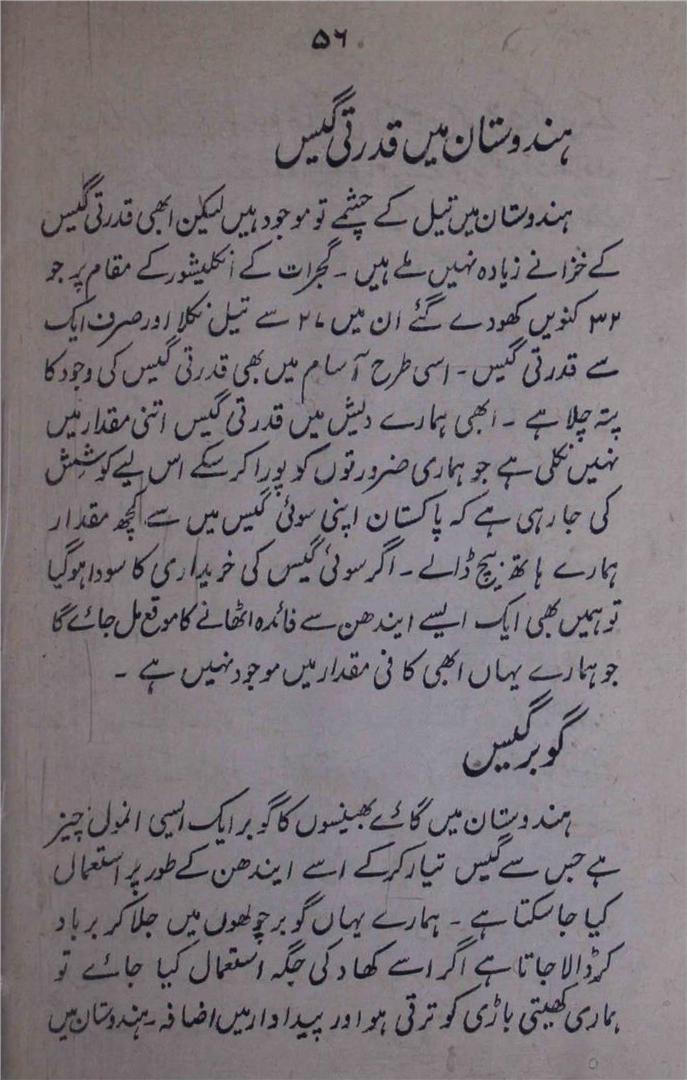 ۵۶
ہندوستان میں قدرتی گیس
ہندوستان میں تیل کے چشمے تو موجود ہیں لیکن ابھی قدرتی گیس
کے خزانے زیادہ نہیں ملے ہیں ۔ گجرات کے انکلیشور کے مقام پر جو
۳۲ کنویں کھودے گئے ان میں ۲۷ سے تیل نکلا اور صرف ایک
سے قدرتی گیس ۔ اسی طرح آسام میں بھی قدرتی گیس کی وجود کا
پتہ چلا ہے ۔ ابھی ہمارے دیش میں قدرتی گیس اتنی مقدار میں
نہیں نکلی ہے جو ہماری ضرورتوں کو پورا کر سکے اس لیے کوشش
کی جا رہی ہے کہ پاکستان اپنی سوئی گیس میں سے کچھ مقدار
ہمارے ہاتھ بیچ ڈالے ۔ اگر سوئی گیس کی خریداری کا سودا ہوگیا
تو ہمیں بھی ایک ایسے ایندھن سے فائدہ اٹھانے کا موقع مل جائے گا
جو ہمارے یہاں ابھی کافی مقدار میں موجود نہیں ہے ۔
گوبر گیس
ہندوستان میں گائے بھینسوں کا گوبر ایک ایسی انمول چیز
ہے جس سے گیس تیار کرکے اسے ایندھن کے طور پر استعمال
کیا جا سکتا ہے ۔ ہمارے یہاں گوبر چولھوں میں جلا کر برباد
کر ڈالا جاتا ہے اگر اسے کھاد کی جگہ استعمال کیا جائے تو
ہماری کھیتی باڑی کو ترقی ہو اور پیداوار میں اضافہ ۔ ہندوستان میں